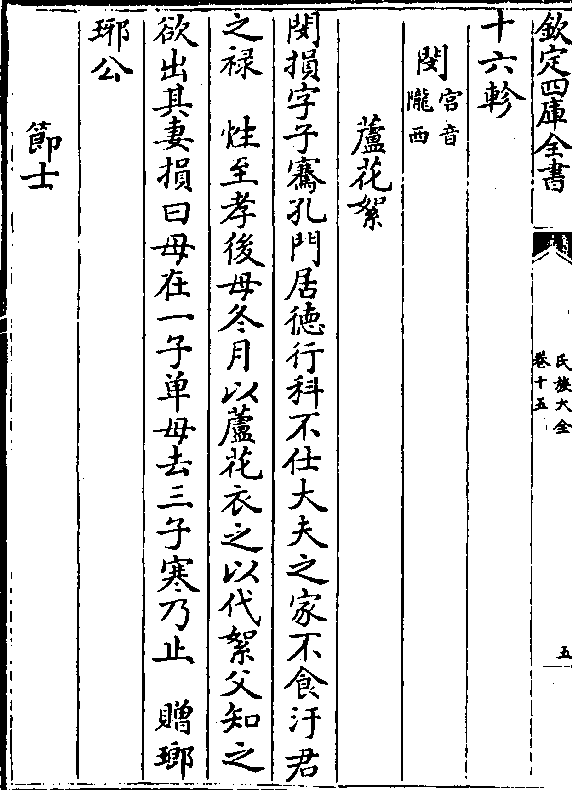 欽定四庫全書
氏族大全
卷十五
五
十六軫
閔
宫音
隴西
蘆花絮
閔損字子騫孔門居徳行科不仕大夫之家不食汙君
之禄 性至孝後母冬月以蘆花衣之以代絮父知之
欲出其妻損曰母在一子单母去三子寒乃止 贈瑯
琊公
節士